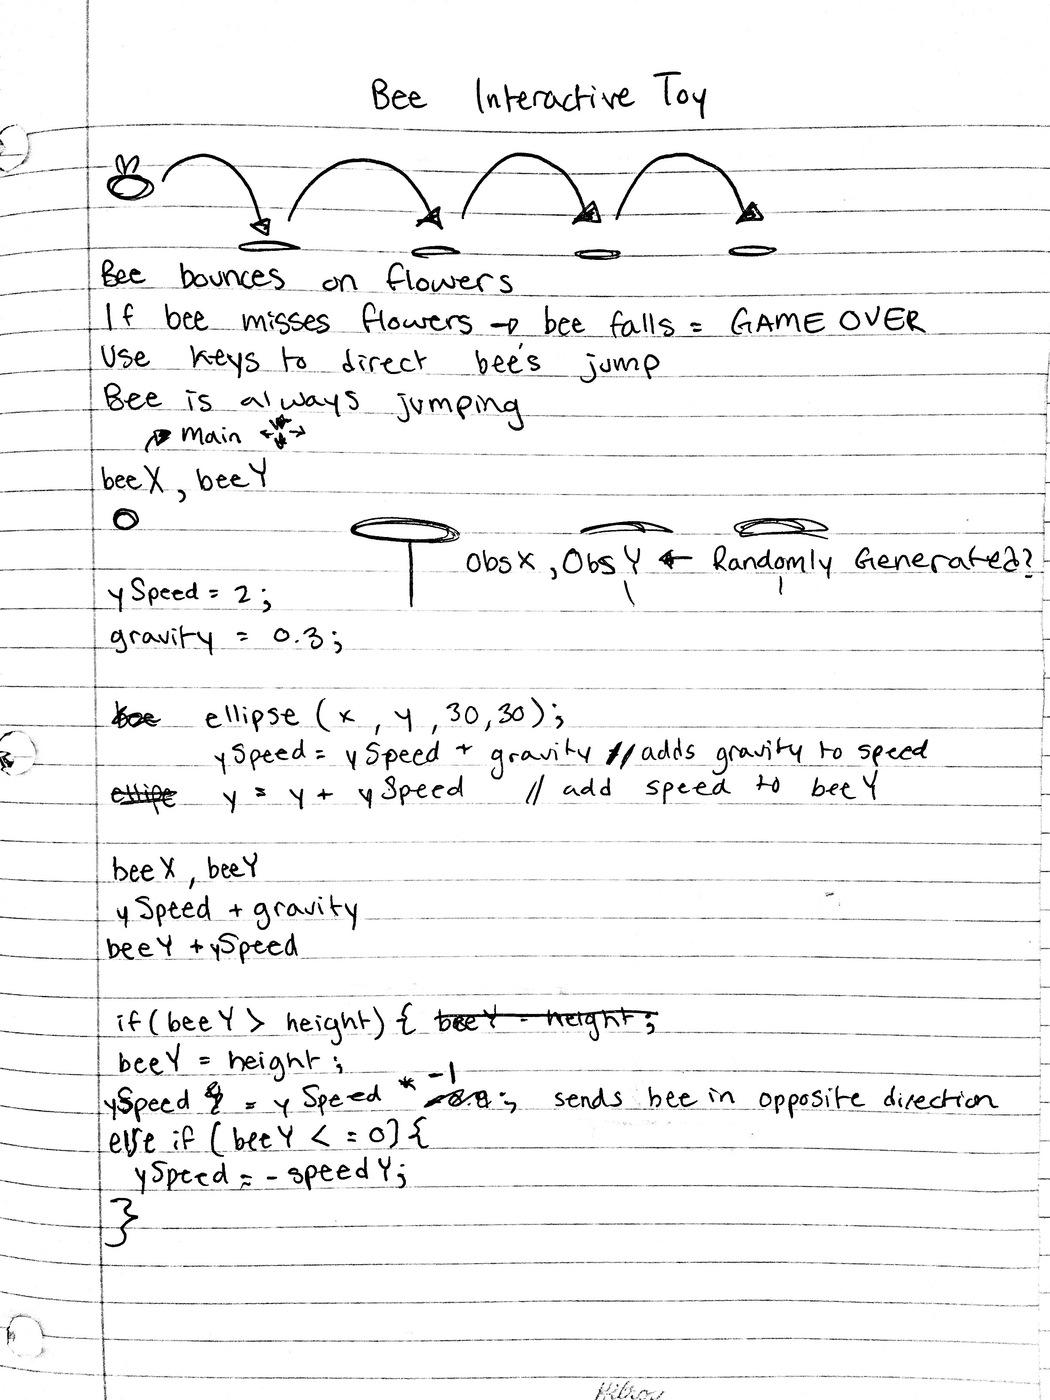 Bee Interactive Toy
Bee bounces on flowers
If bee misses flowers → bee falls = GAME OVER
Use keys to direct bee's jump
Bee is always jumping
Main
beeX, beeY
ObsX, ObsY ← Randomly Generated?
ySpeed = 2;
gravity = 0.3;
bee ellipse (x, y, 30, 30);
ySpeed = ySpeed + gravity // adds gravity to speed
ellipe y = y + ySpeed // add speed to beeY
beeX, beeY
ySpeed + gravity
beeY + ySpeed
if (beeY > height) { beeY = height;
beeY = height;
ySpeed = ySpeed * -1; sends bee in opposite direction
else if (beeY <= 0) {
ySpeed = - speedY;
}
Hilroy